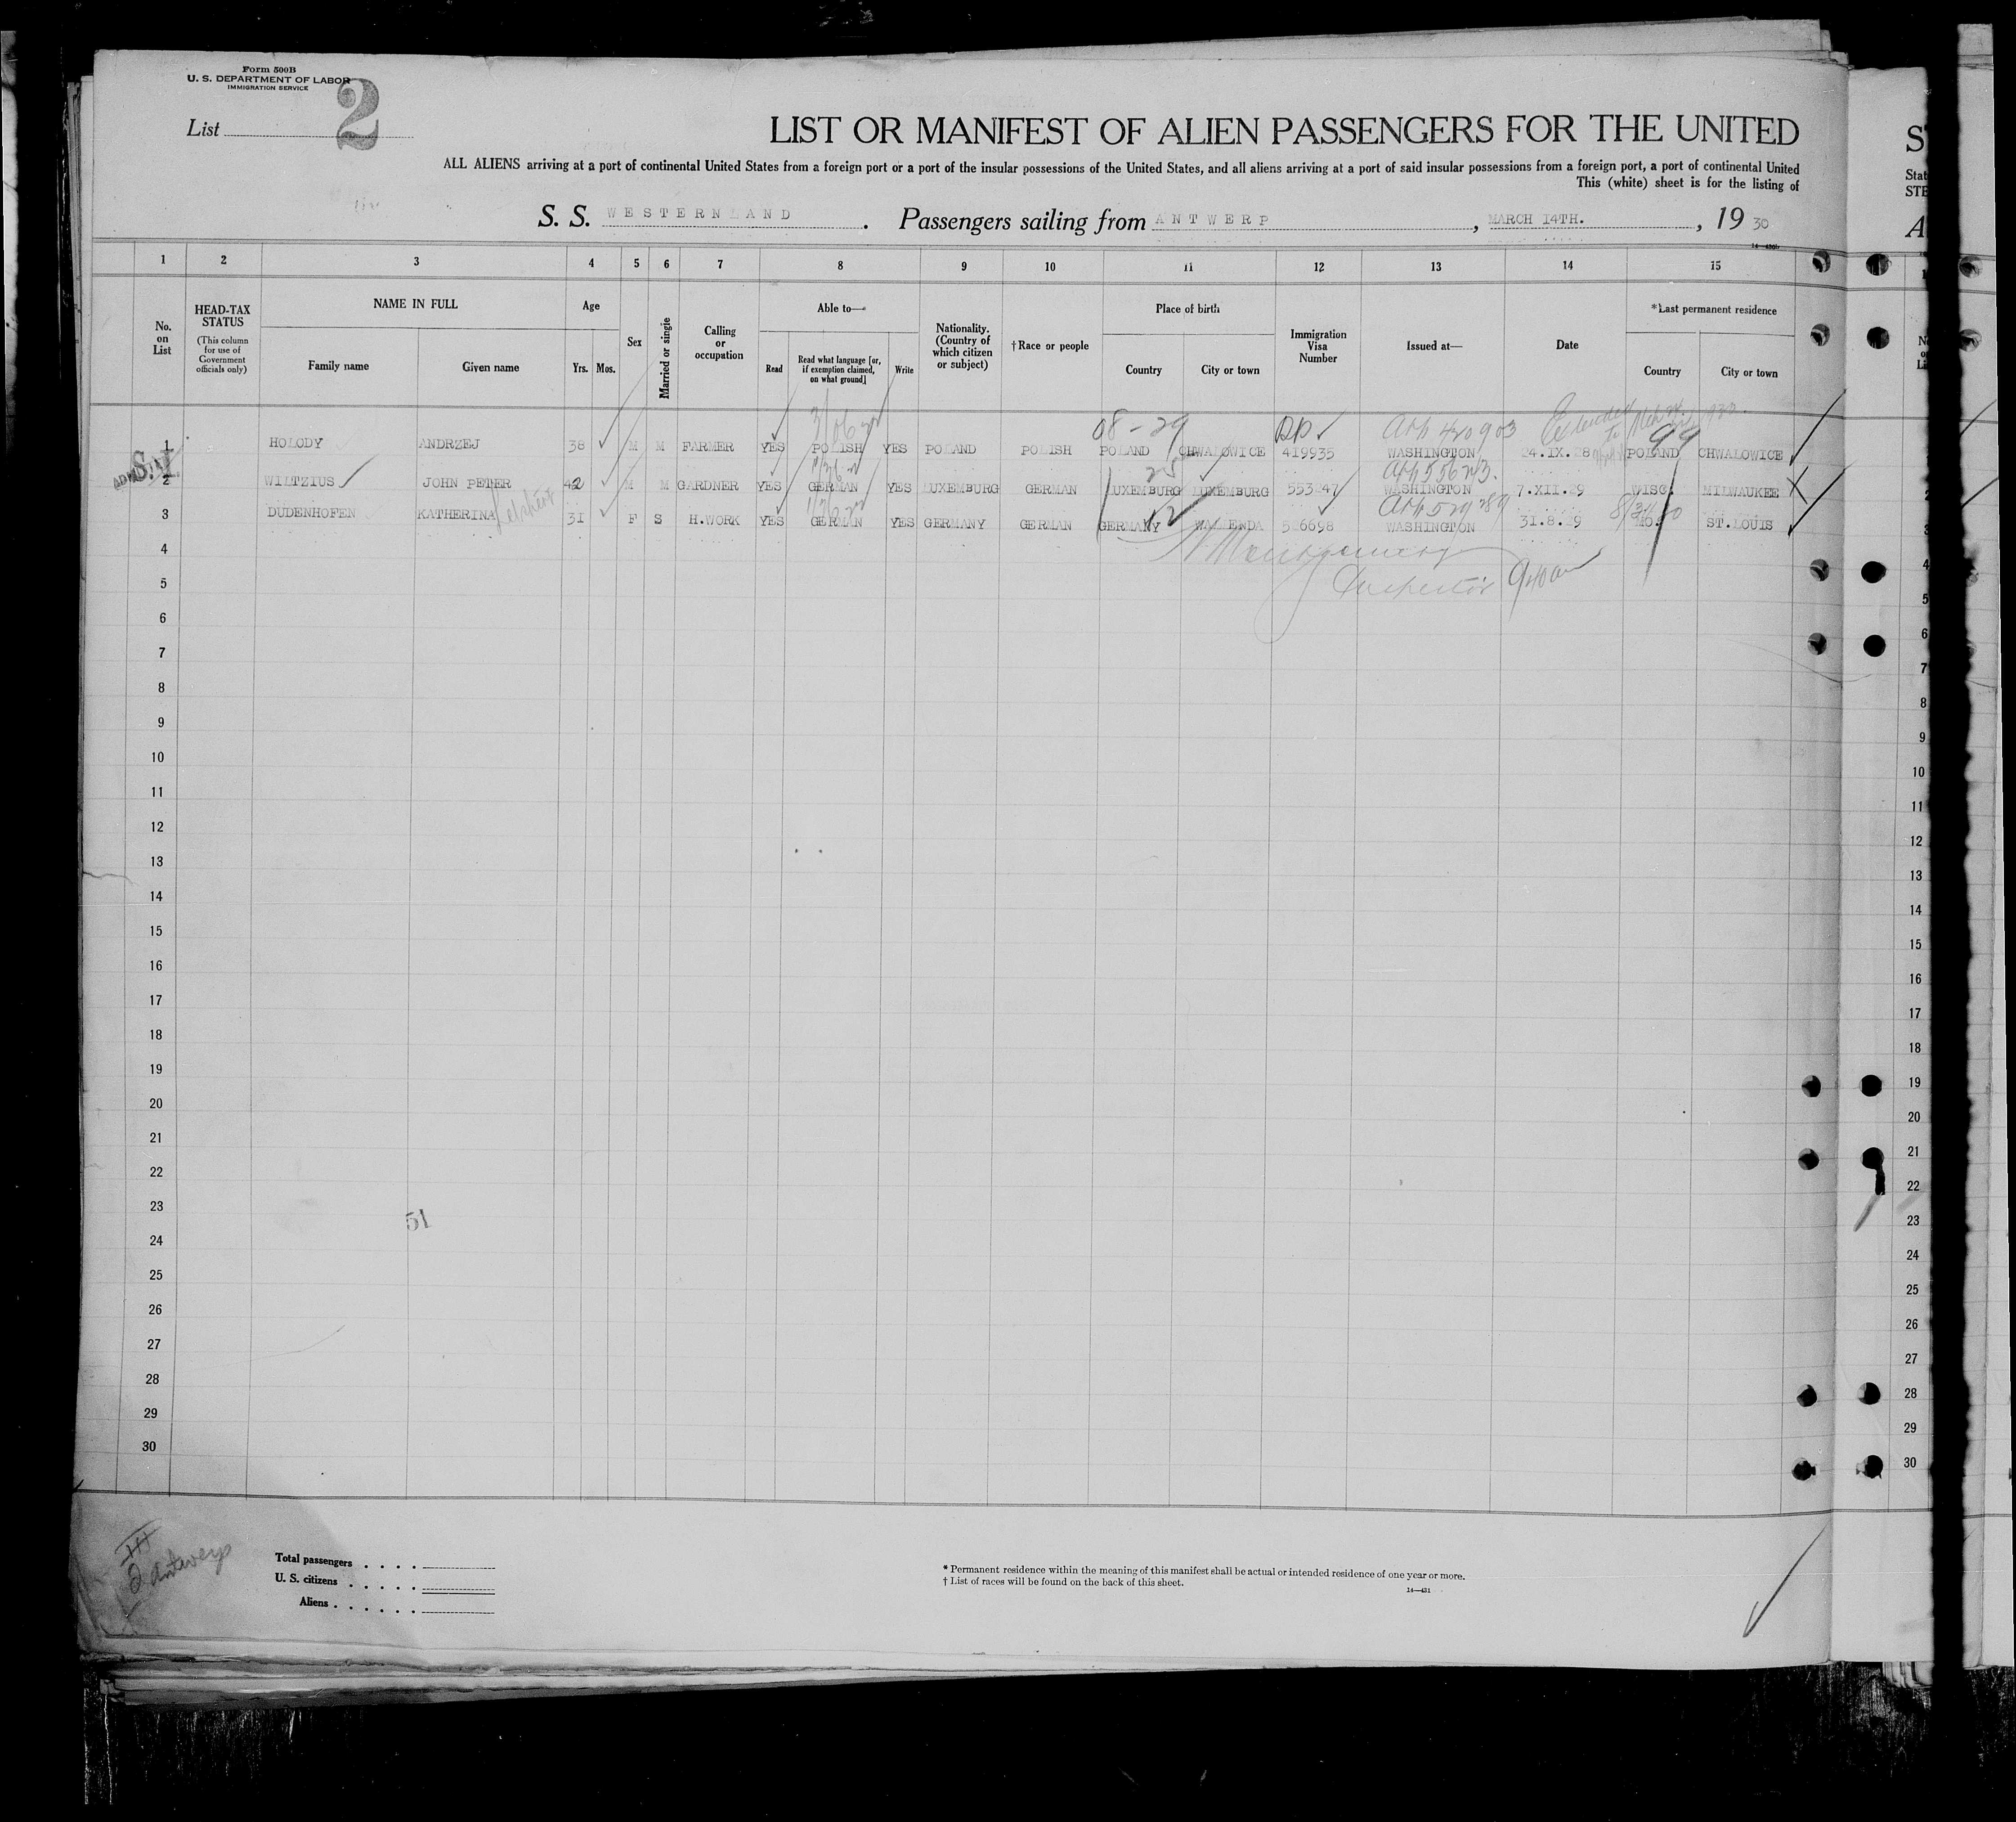 Form 500B
U. S. DEPARTMENT OF LABOR
IMMIGRATION SERVICE
List 2
LIST OR MANIFEST OF ALIEN PASSENGERS FOR THE UNITED
ALL ALIENS arriving at a port of continental United States from a foreign port or a port of the insular possessions of the United States, and all aliens arriving at a port of said insular possessions from a foreign port, a port of continental United
This (white) sheet is for the listing of
S. S. WESTERNLAND. Passengers sailing from ANTWERP, MARCH 14TH., 19 30
1 2 3 4 5 6 7 8 9 10 11 12 13 14 15
No. on List
HEAD-TAX STATUS
(This column for use of Government officials only)
NAME IN FULL
Family name
Given name
Age
Yrs. Mos.
Sex
Married or single
Calling or occupation
Able to—
Read
Read what language [or, if exemption claimed, on what ground]
Write
Nationality. (Country of which citizen or subject)
†Race or people
Place of birth
Country
City or town
Immigration Visa Number
Issued at—
Date
*Last permanent residence
Country
City or town
08-29
App 420903
Extended to
99
1 HOLODY ANDRZEJ 38 M M FARMER YES POLISH YES POLAND POLISH POLAND CHWALOWICE 419935 WASHINGTON 24.IX.28 POLAND CHWALOWICE
25
2 WILTZIUS JOHN PETER 42 M M GARDNER YES GERMAN YES LUXEMBURG GERMAN LUXEMBURG LUXEMBURG 553247 WASHINGTON 7.XII.29 WISC. MILWAUKEE
12
3 DUDENHOFEN KATHERINA 31 F S H.WORK YES GERMAN YES GERMANY GERMAN GERMANY 526698 WASHINGTON 31.8.29 MO. ST.LOUIS
4 Montgomery
5 Inspector 940am
6
7
8
9
10
11
12
13
14
15
16
17
18
19
20
21
22
23
51
24
25
26
27
28
29
30
III
2 Antwerp
Total passengers
U. S. citizens
Aliens
* Permanent residence within the meaning of this manifest shall be actual or intended residence of one year or more.
† List of races will be found on the back of this sheet.
14—431
S
Stat
STE
A
4
5
6
7
8
9
10
11
12
13
14
15
16
17
18
19
20
21
22
23
24
25
26
27
28
29
30